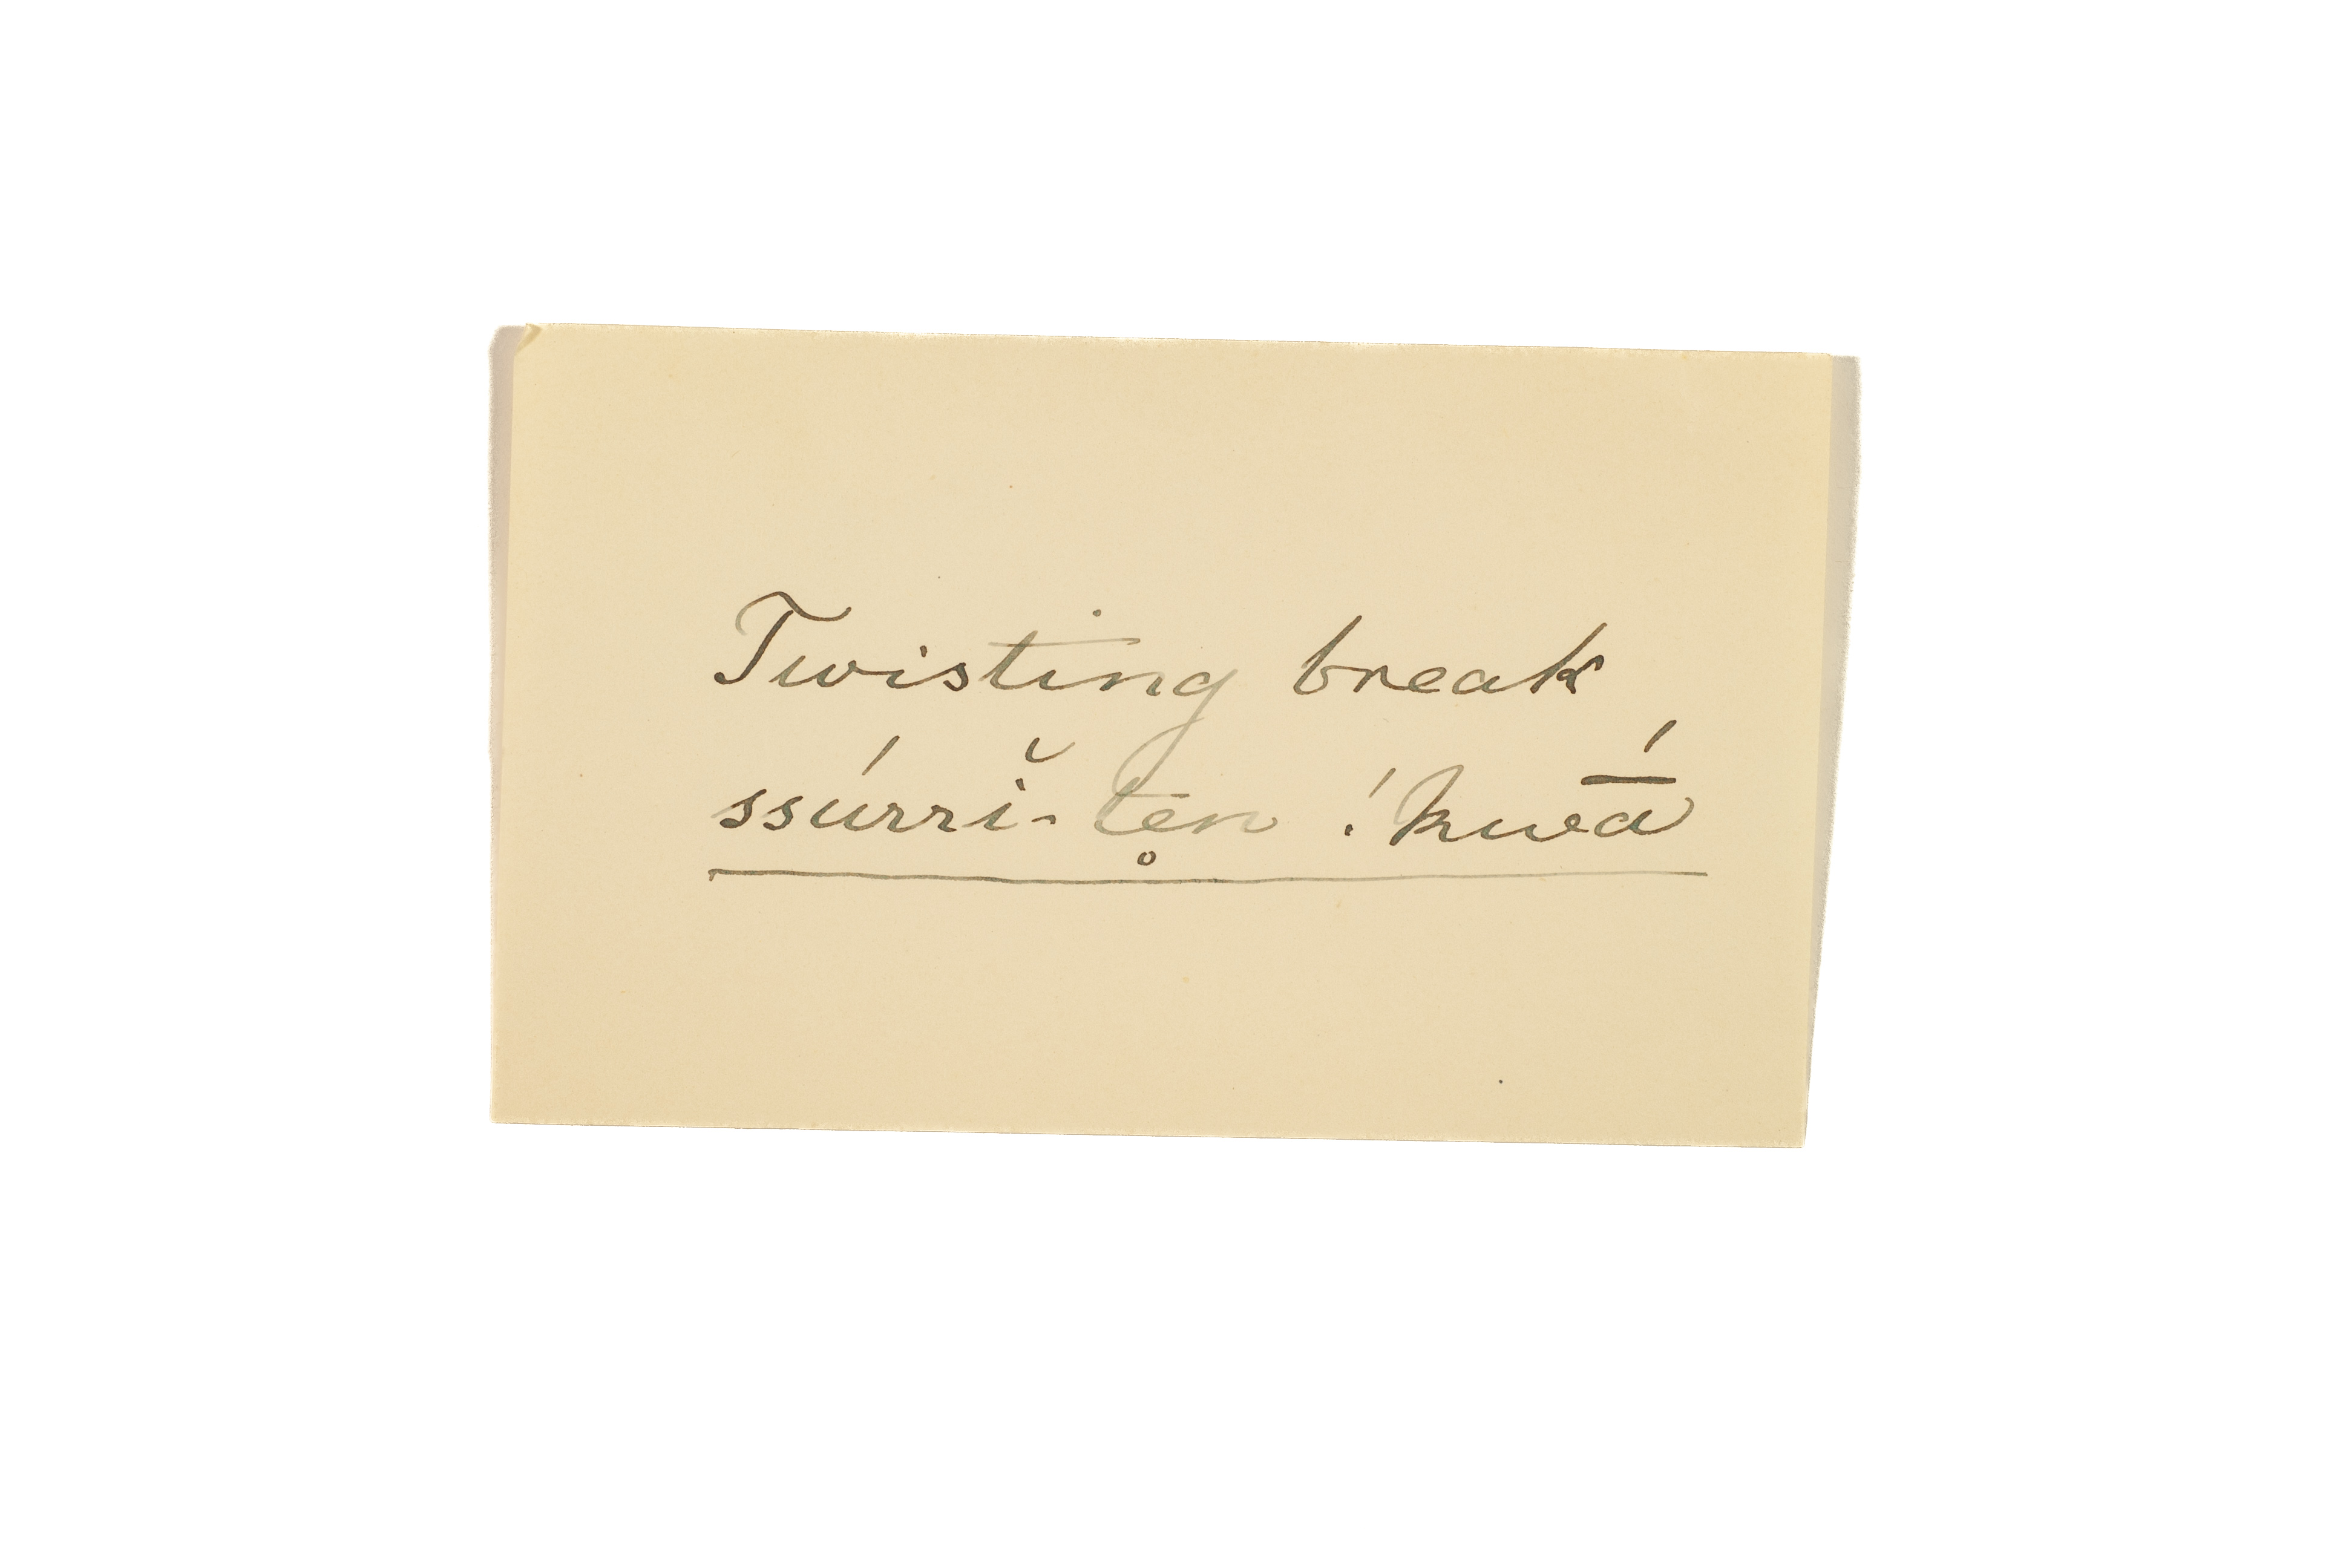 Twisting break
ssúrrĭ-te̥n !kwā́